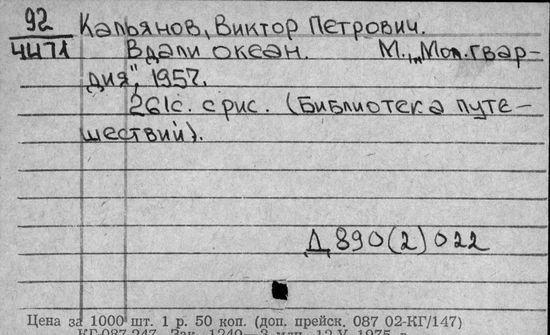 92 Кальянов, Виктор Петрович.
4471 Вдали океан. М., „Мол. гвар-
дия", 1957.
261с. с рис. (Библиотека путе-
шествий).
Д 890(2)022
Цена за 1000 шт. 1 р. 50 коп. (доп. прейск. 087 02-КГ/147)
КГ-087-247. Зак. 1240—3 млн. 12.V. 1975 г.